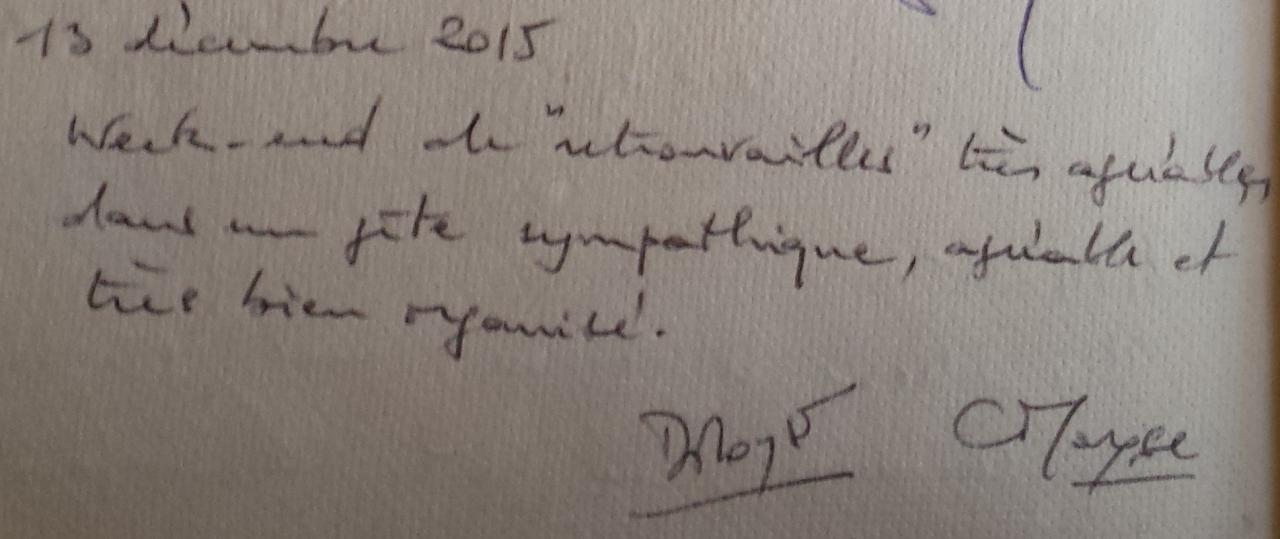 13 décembre 2015
Week-end de "retrouvailles" très agréables,
dans un gîte sympathique, agréable et
très bien organisé.